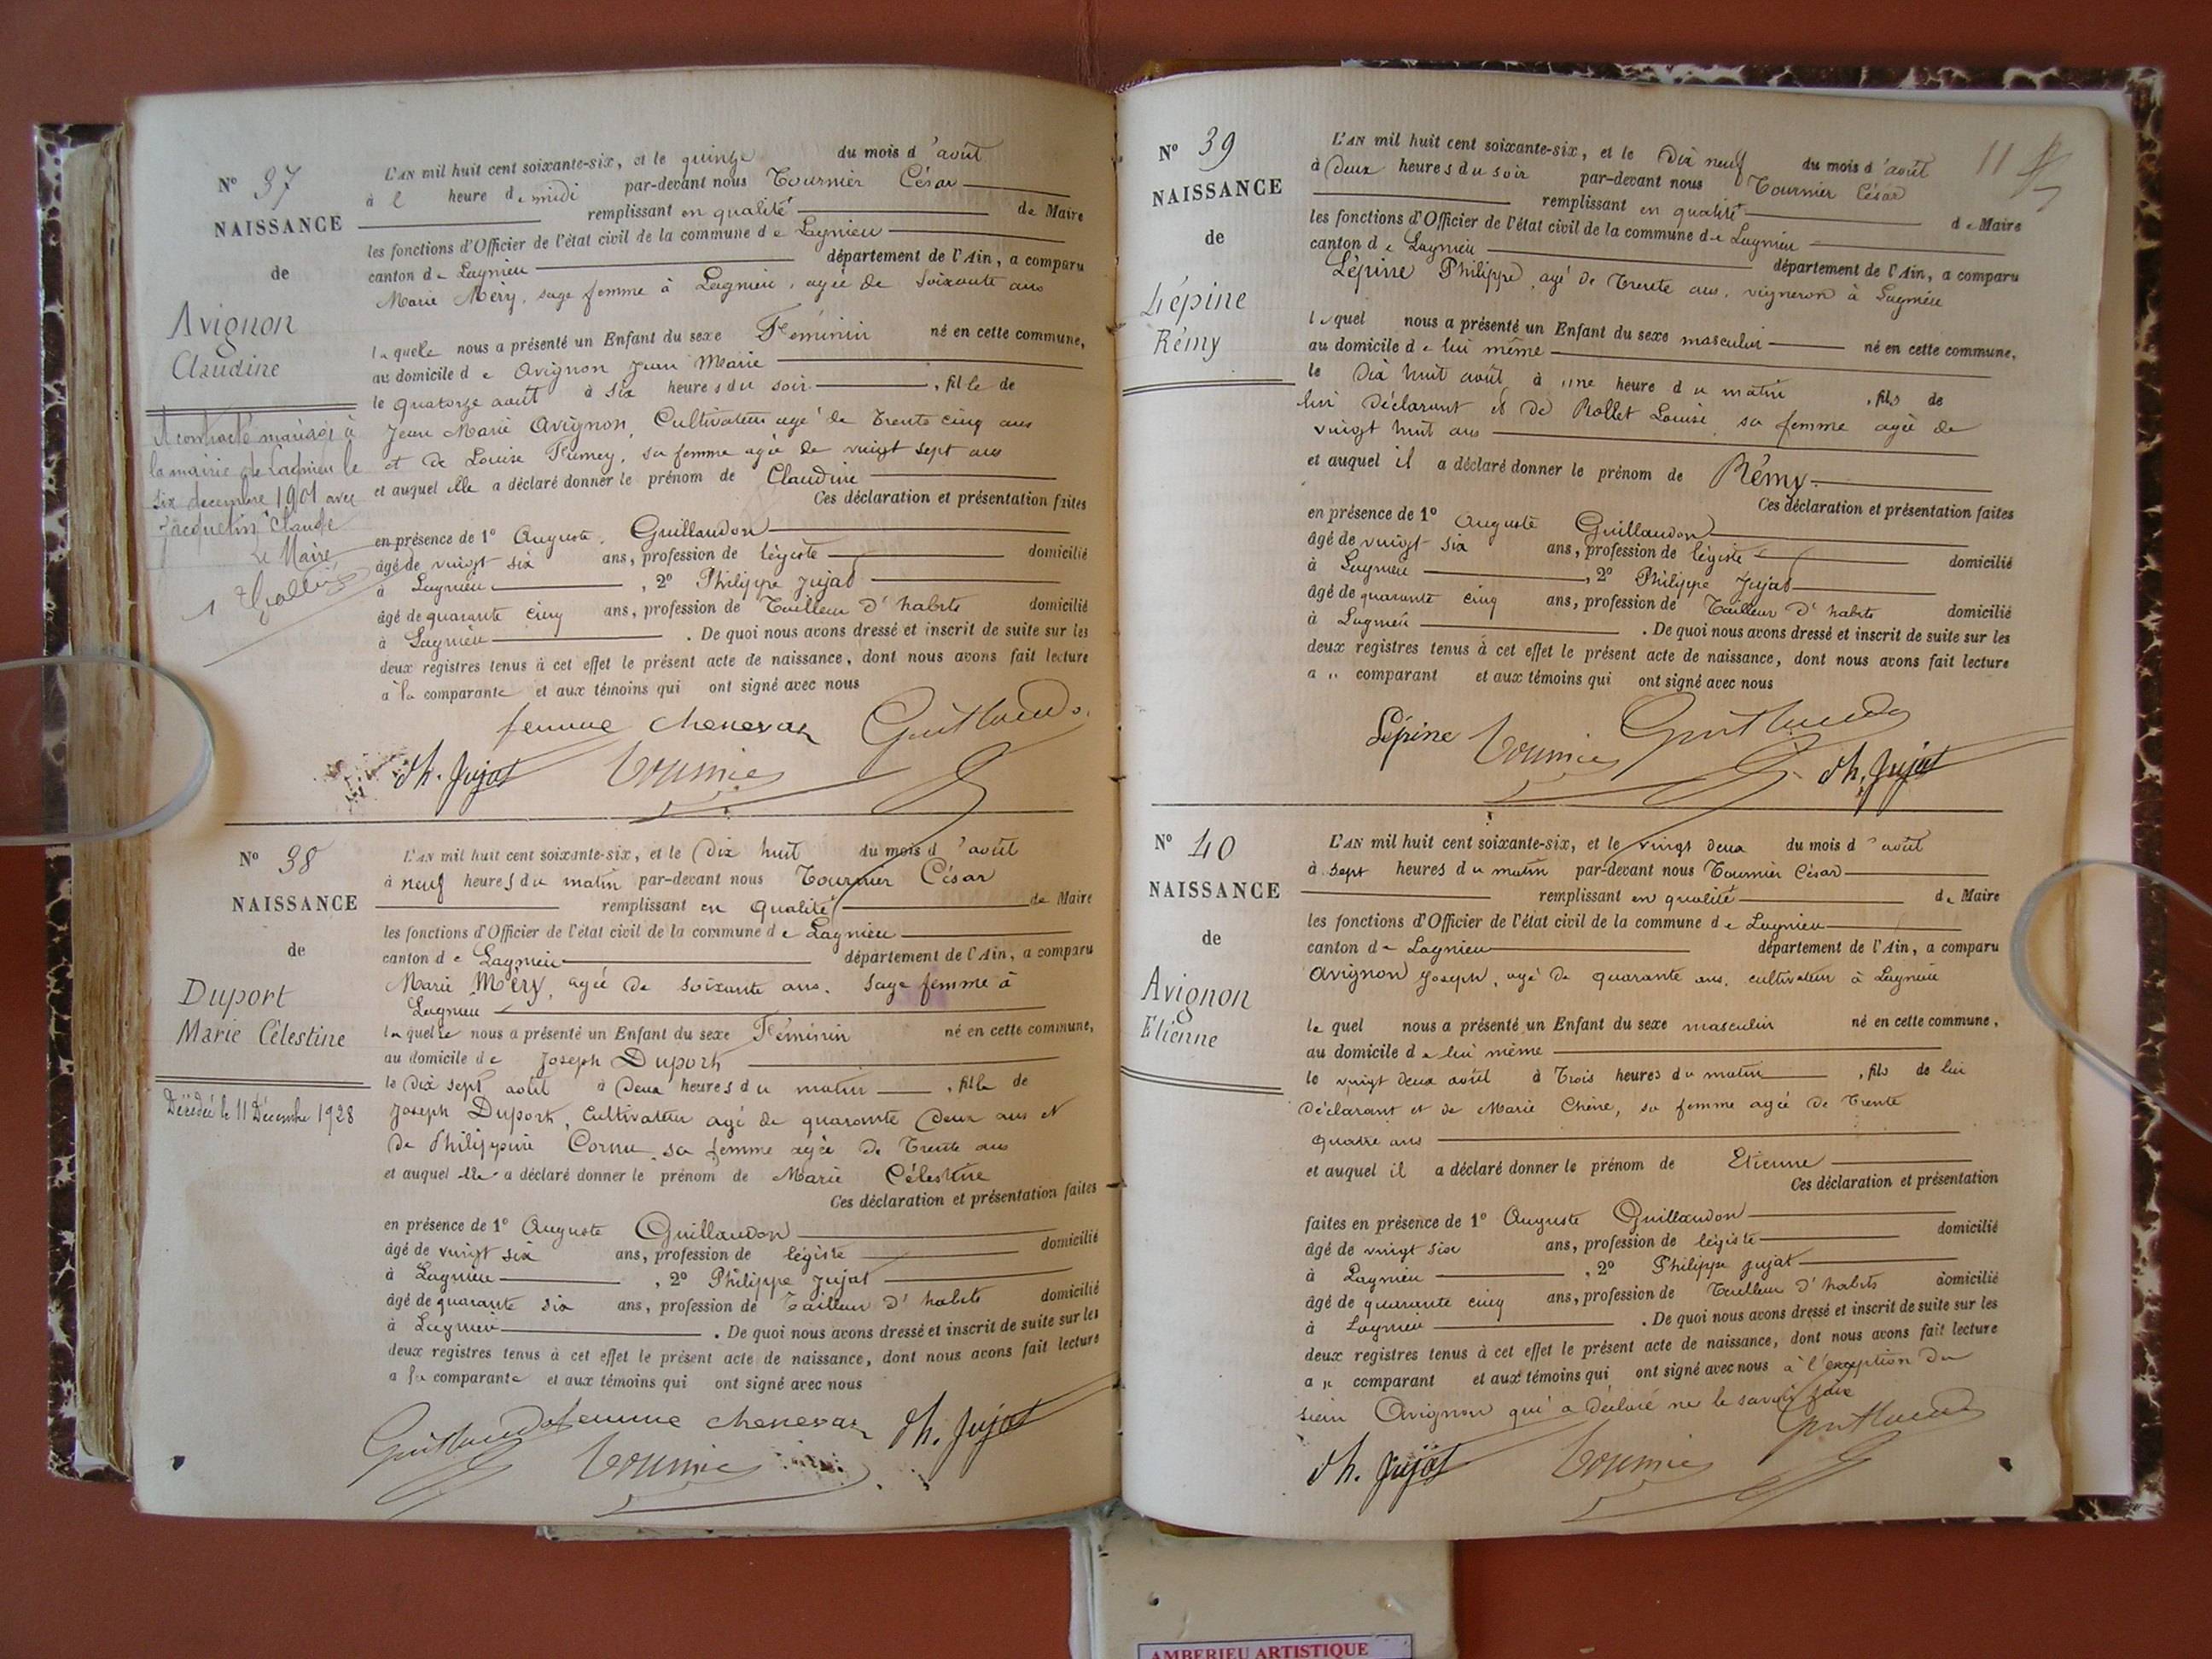 N° 37
NAISSANCE
de
Avignon
Claudine
A contracté mariage à
la mairie de Lagnieu le
six décembre 1901 avec
Jacquetin Claude
Le Maire
L'AN mil huit cent soixante-six, et le quinze du mois d'août
à l heure de midi par-devant nous Tournier César
remplissant en qualité de Maire
les fonctions d'Officier de l'état civil de la commune de Lagnieu
canton de Lagnieu département de l'Ain, a comparu
Marie Méry, sage femme à Lagnieu, agée de soixante ans
laquelle nous a présenté un Enfant du sexe Féminin né en cette commune,
au domicile de Avignon Jean Marie
le quatorze août à six heures du soir, fille de
Jean Marie Avignon, Cultivateur agé de trente cinq ans
et de Louise Fumey, sa femme agée de vingt sept ans
et auquel elle a déclaré donner le prénom de Claudine
Ces déclaration et présentation faites
en présence de 1° Auguste Guillaudon
âgé de vingt six ans, profession de légiste domicilié
à Lagnieu, 2° Philippe Jujat
âgé de quarante cinq ans, profession de Tailleur d'habits domicilié
à Lagnieu. De quoi nous avons dressé et inscrit de suite sur les
deux registres tenus à cet effet le présent acte de naissance, dont nous avons fait lecture
a la comparante et aux témoins qui ont signé avec nous
femme chenevaz
Ph. Jujat Tournier
N° 38
NAISSANCE
de
Duport
Marie Célestine
Décédée le 11 Décembre 1928
L'AN mil huit cent soixante-six, et le Dix huit du mois d'août
à neuf heures du matin par-devant nous Tournier César
remplissant en qualité de Maire
les fonctions d'Officier de l'état civil de la commune de Lagnieu
canton de Lagnieu département de l'Ain, a comparu
Marie Méry, agée de soixante ans, sage femme à
Lagnieu
laquelle nous a présenté un Enfant du sexe Féminin né en cette commune,
au domicile de Joseph Duport
le Dix sept août à deux heures du matin, fille de
Joseph Duport, Cultivateur agé de quarante deux ans et
de Philippine Cornu sa femme agée de Trente ans
et auquel elle a déclaré donner le prénom de Marie Célestine
Ces déclaration et présentation faites
en présence de 1° Auguste Guillaudon
âgé de vingt six ans, profession de légiste domicilié
à Lagnieu, 2° Philippe Jujat
âgé de quarante six ans, profession de Tailleur d'habits domicilié
à Lagnieu. De quoi nous avons dressé et inscrit de suite sur les
deux registres tenus à cet effet le présent acte de naissance, dont nous avons fait lecture
a la comparante et aux témoins qui ont signé avec nous
femme chenevaz Ph. Jujat
Tournier
N° 39
NAISSANCE
de
Lépine
Rémy
11
L'AN mil huit cent soixante-six, et le Dix neuf du mois d'août
à deux heures du soir par-devant nous Tournier César
remplissant en qualité de Maire
les fonctions d'Officier de l'état civil de la commune de Lagnieu
canton de Lagnieu département de l'Ain, a comparu
Lépine Philippe, agé de Trente ans, vigneron à Lagnieu
lequel nous a présenté un Enfant du sexe masculin né en cette commune,
au domicile de lui même
le Dix huit août à une heure du matin, fils de
lui déclarant et de Rollet Louise, sa femme agée de
vingt huit ans
et auquel il a déclaré donner le prénom de Rémy.
Ces déclaration et présentation faites
en présence de 1° Auguste Guillaudon
âgé de vingt six ans, profession de légiste domicilié
à Lagnieu, 2° Philippe Jujat
âgé de quarante cinq ans, profession de Tailleur d'habits domicilié
à Lagnieu. De quoi nous avons dressé et inscrit de suite sur les
deux registres tenus à cet effet le présent acte de naissance, dont nous avons fait lecture
a u comparant et aux témoins qui ont signé avec nous
Lépine Tournier
Ph. Jujat
N° 40
NAISSANCE
de
Avignon
Etienne
L'AN mil huit cent soixante-six, et le vingt deux du mois d'août
à sept heures du matin par-devant nous Tournier César
remplissant en qualité de Maire
les fonctions d'Officier de l'état civil de la commune de Lagnieu
canton de Lagnieu département de l'Ain, a comparu
Avignon Joseph, agé de quarante ans, cultivateur à Lagnieu
lequel nous a présenté un Enfant du sexe masculin né en cette commune,
au domicile de lui même
le vingt deux août à Trois heures du matin, fils de lui
déclarant et de Marie Chêne, sa femme agée de Trente
quatre ans
et auquel il a déclaré donner le prénom de Etienne
Ces déclaration et présentation
faites en présence de 1° Auguste Guillaudon
âgé de vingt six ans, profession de légiste domicilié
à Lagnieu, 2° Philippe Jujat
âgé de quarante cinq ans, profession de Tailleur d'habits domicilié
à Lagnieu. De quoi nous avons dressé et inscrit de suite sur les
deux registres tenus à cet effet le présent acte de naissance, dont nous avons fait lecture
a u comparant et aux témoins qui ont signé avec nous à l'exception du
sieur Avignon qui a déclaré ne le savoir faire
Ph. Jujat Tournier
AMBERIEU ARTISTIQUE